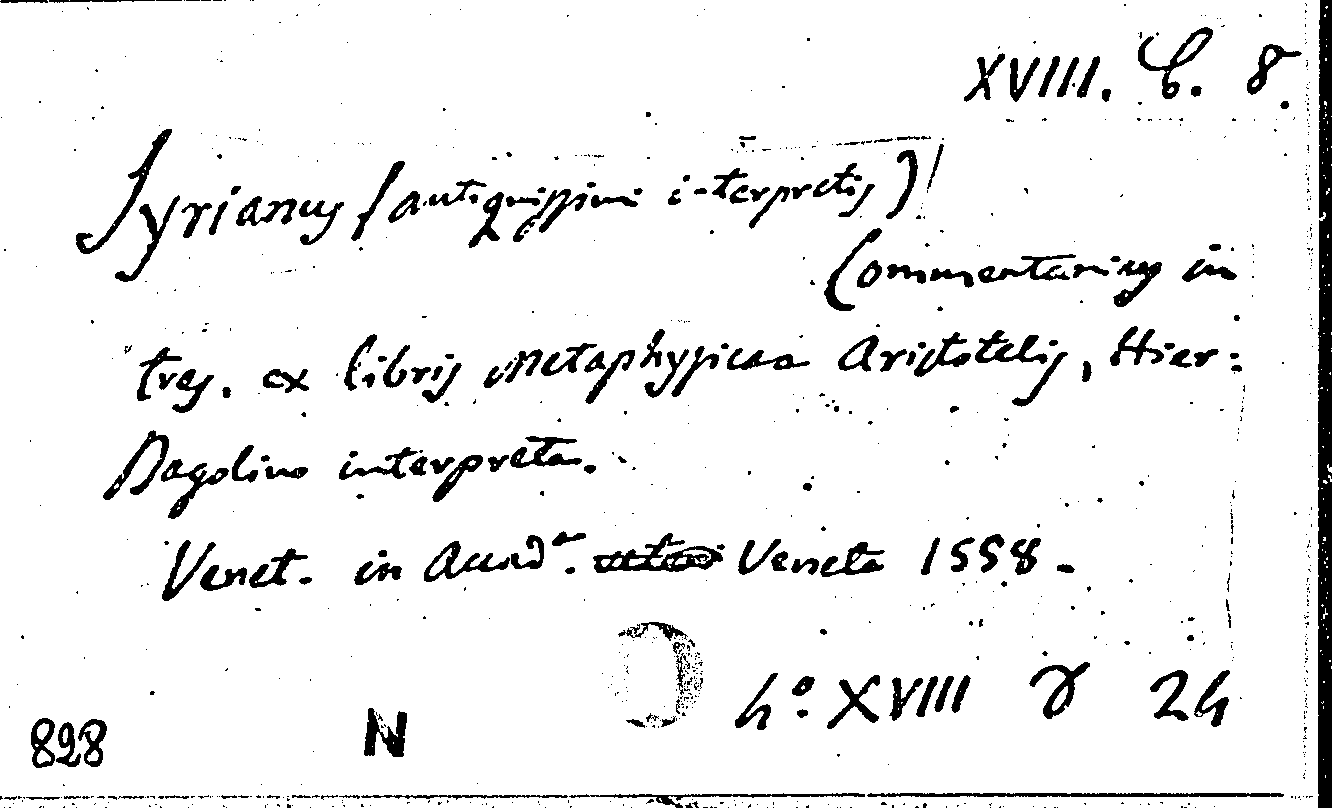 XVIII. C. 8.
Syrianus (antiquissimi interpretis)
Commentarius in
tres. ex libris Metaphysicae Aristotelis, Hier:
Bagolino interprete.
Venet. in Acad.a Veneta 1558.
4.o XVIII γ 24
828 N